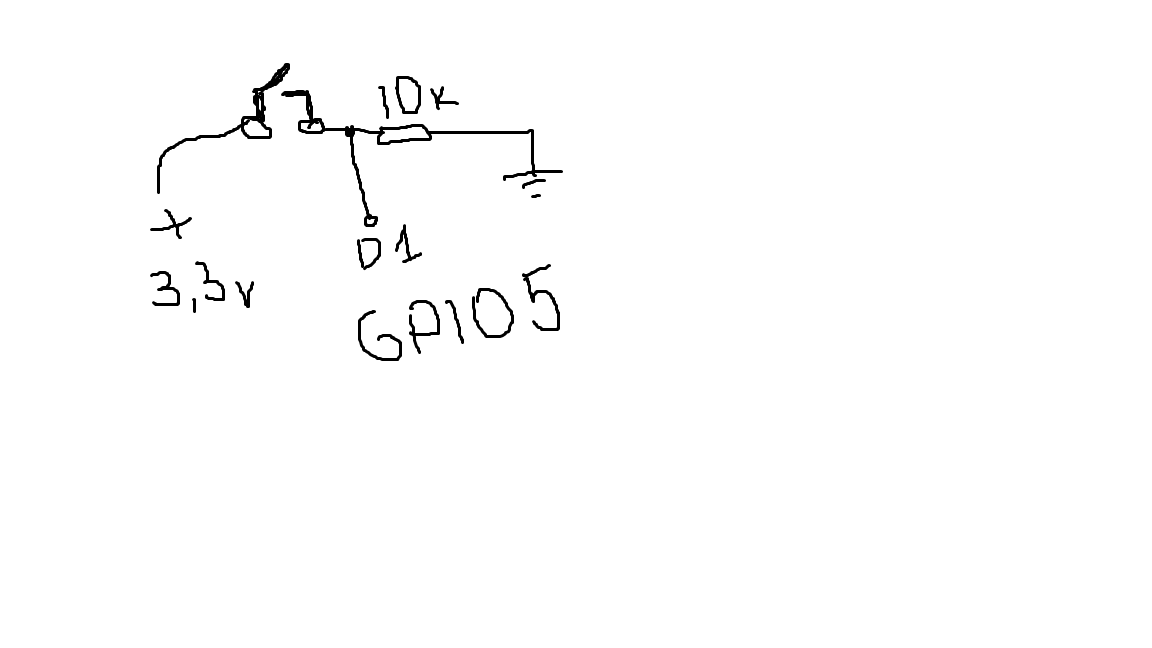 10K
+
3,3v
D1
GPIO5